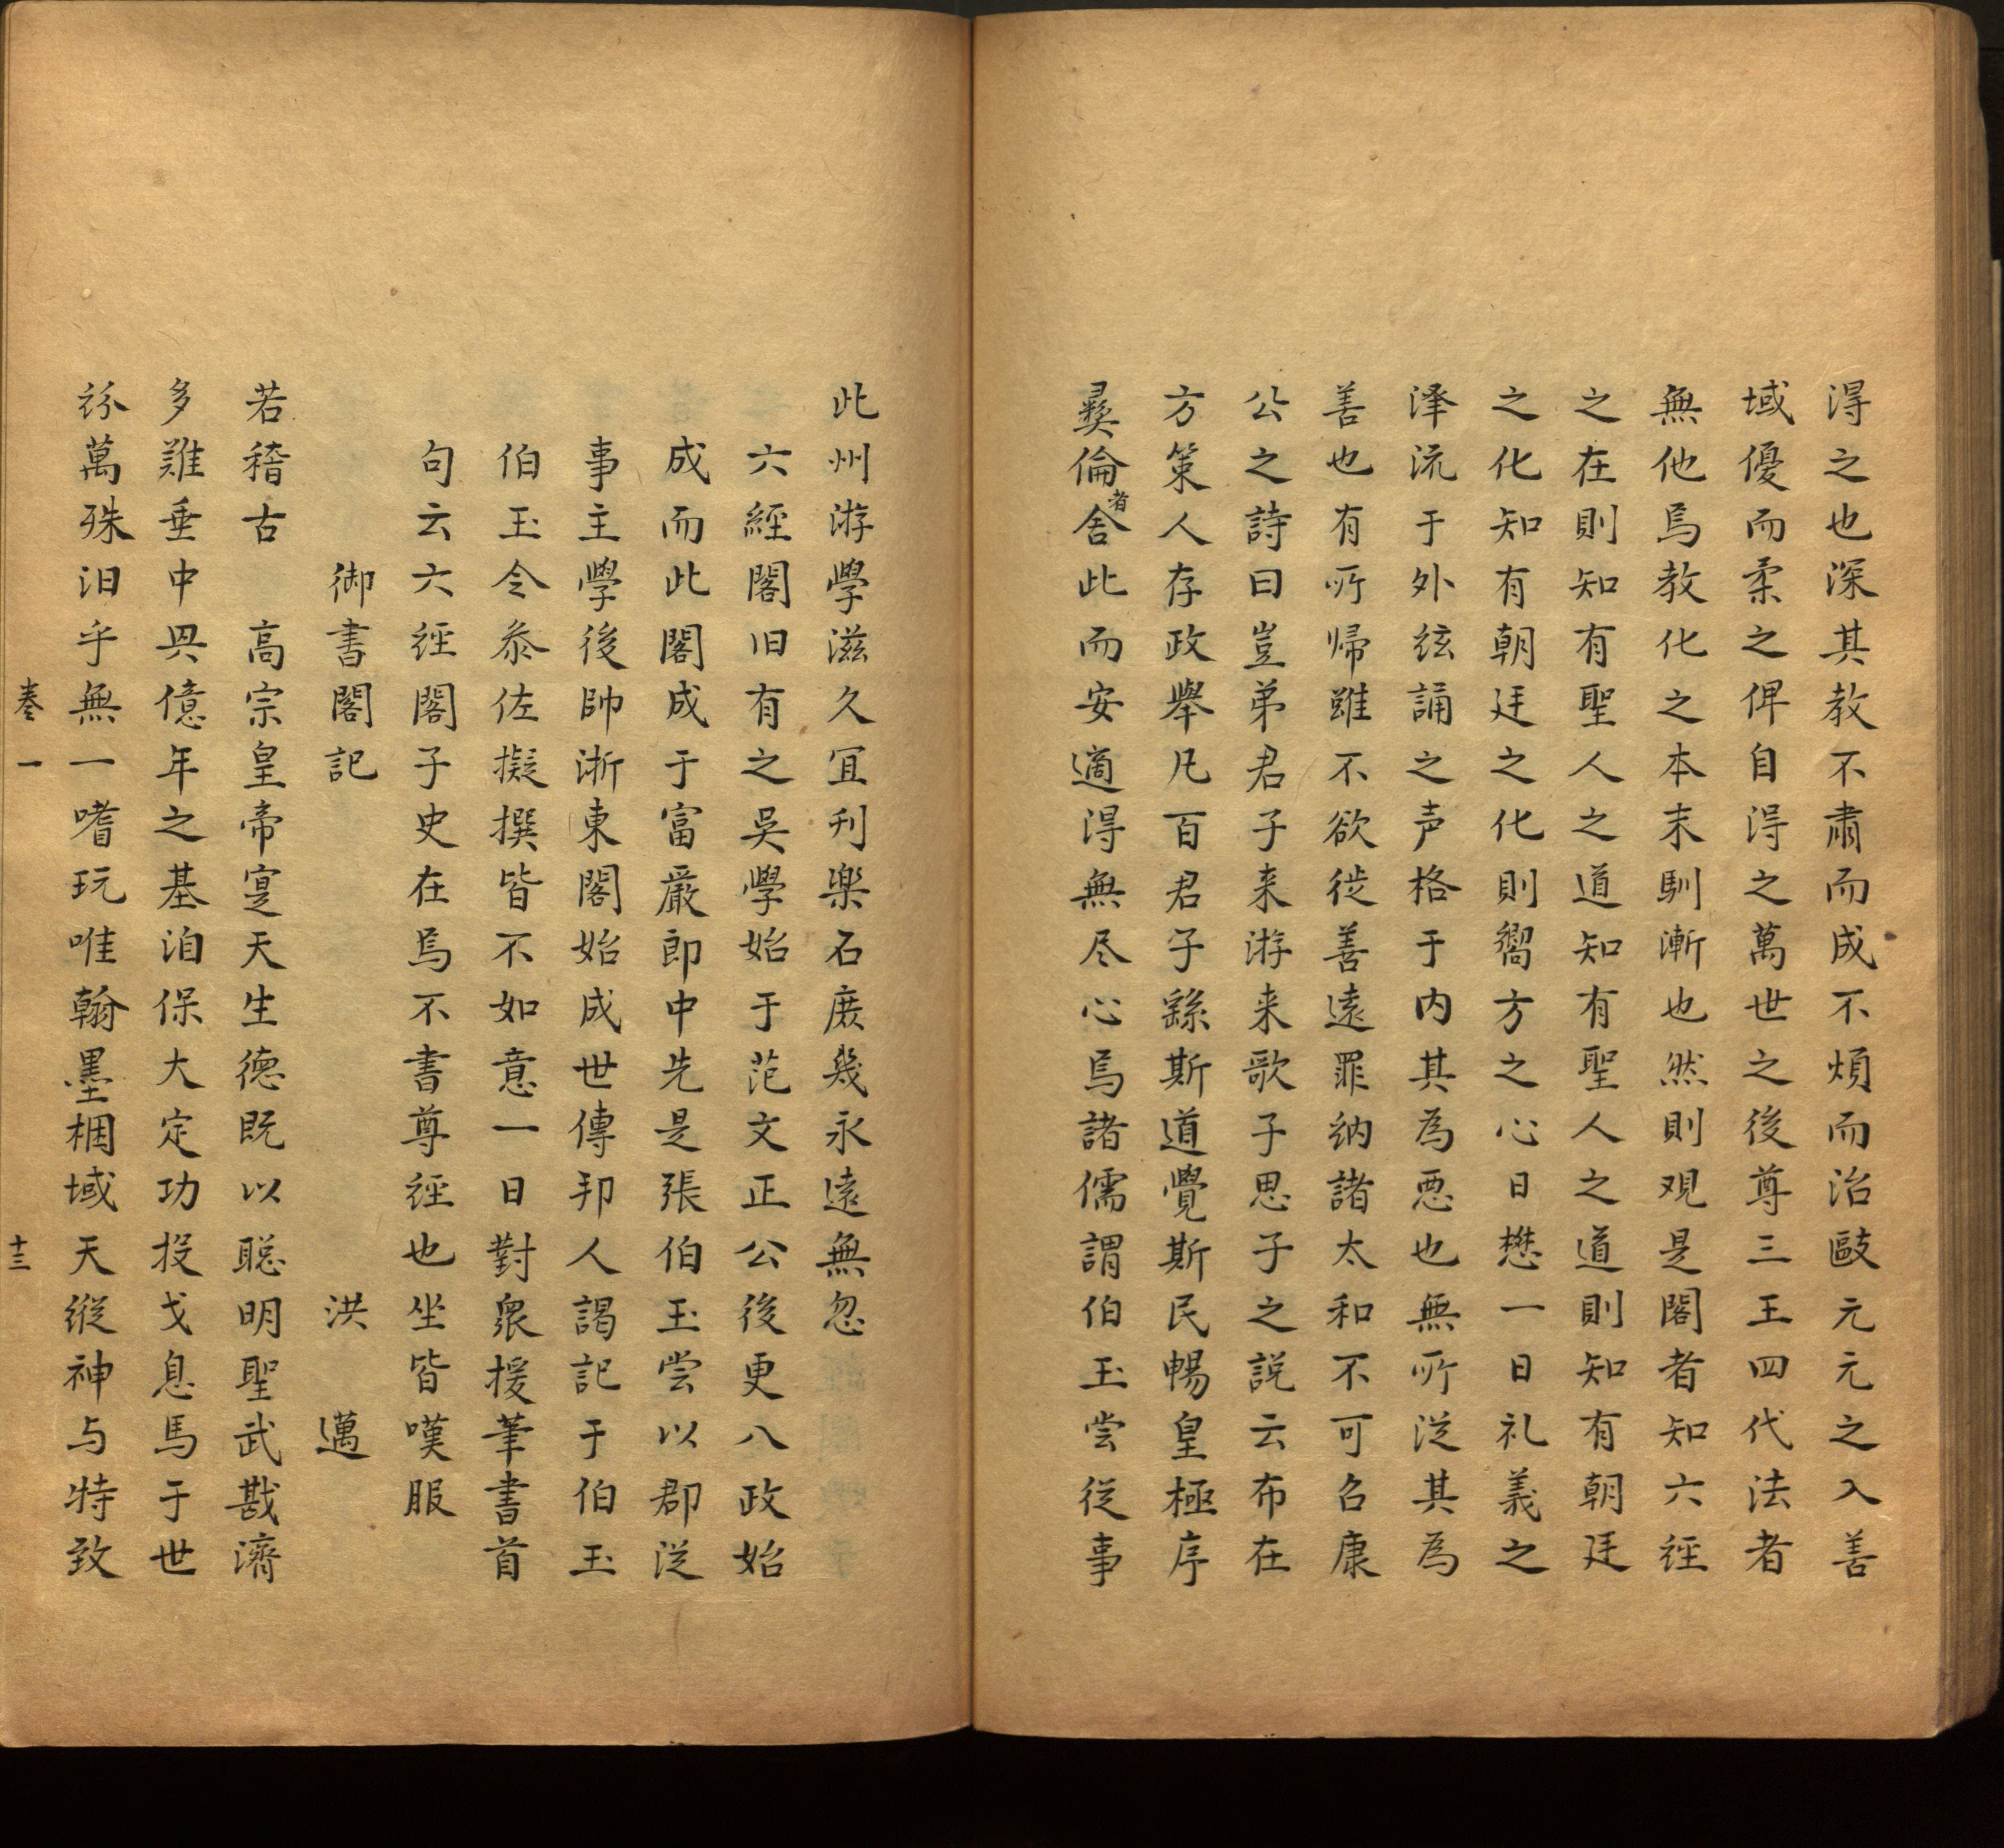 得之也深其教不肅而成不煩而治歐元元之入善
域優而柔之俾自得之萬世之後尊三王四代法者
無他焉教化之本末馴漸也然則观是閣者知六經
之在則知有聖人之道知有聖人之道則知有朝廷
之化知有朝廷之化則嚮方之心日懋一日礼義之
泽流于外絃誦之声格于内其為悪也無所従其為
善也有所帰雖不欲徙善遠罪納諸太和不可召康
公之詩曰豈弟君子来游来歌子思子之説云布在
方策人存政舉凡百君子繇斯道覺斯民暢皇極序
彛倫者舍此而安適得無尽心焉諸儒謂伯玉尝従事
此州游學滋久宜刊樂石庶幾永遠無忽
六經閣旧有之吳學始于范文正公後更八政始
成而此閣成于富嚴郎中先是張伯玉尝以郡従
事主學後帥浙東閣始成世傳邦人謁記于伯玉
伯玉令叅佐擬撰皆不如意一日對衆援筆書首
句云六經閣子史在焉不書尊經也坐皆嘆服
御書閣記 洪邁
若稽古 高宗皇帝寔天生德既以聡明聖武戡濟
多難垂中興億年之基洎保大定功投戈息馬于世
紛萬殊汨乎無一嗜玩唯翰墨梱域天縱神与特致
卷一 十三